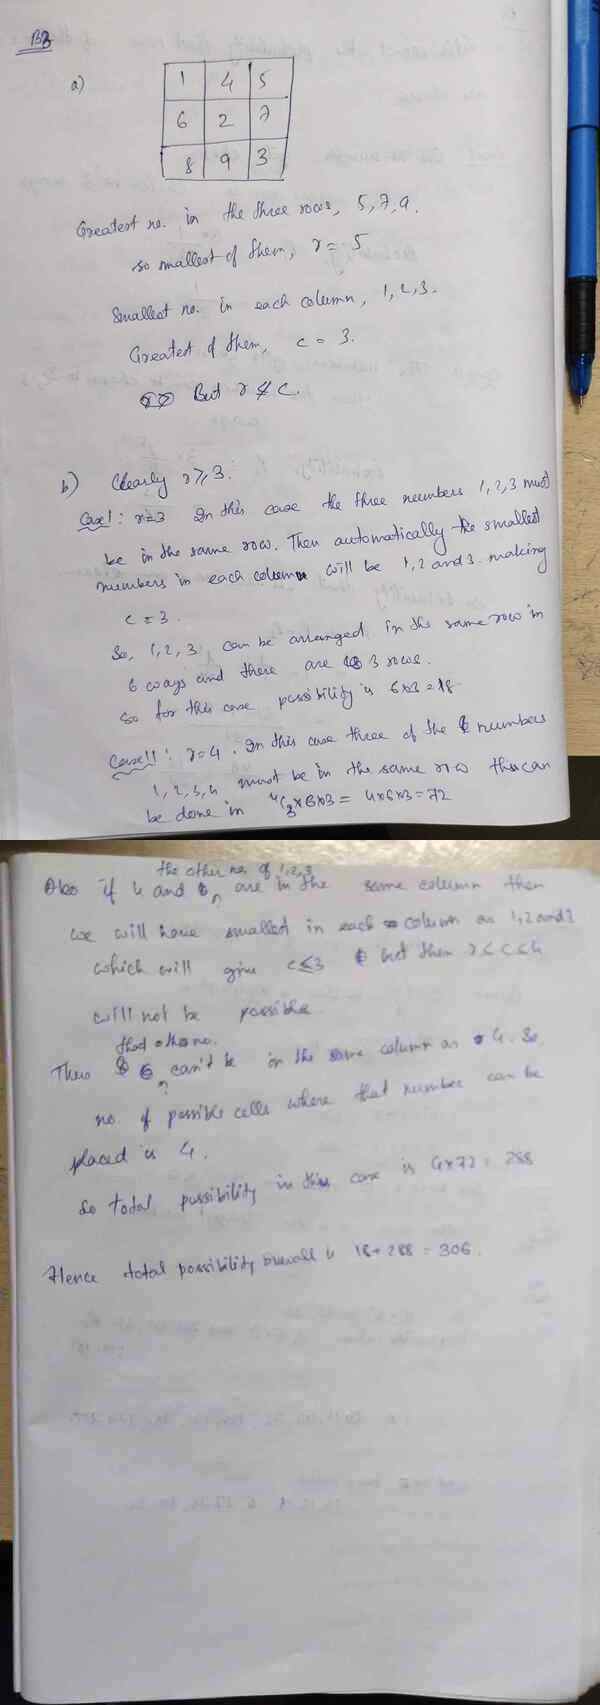 B3
a)
1 4 5
6 2 7
8 9 3
Greatest no. in the three rows, 5, 7, 9.
so smallest of them, r = 5
Smallest no. in each column, 1, 2, 3.
Greatest of them, c = 3.
But r ≮ c.
b) Clearly r ≥ 3.
Case I: r=3 In this case the three numbers 1, 2, 3 must
be in the same row. Then automatically the smallest
numbers in each column will be 1, 2 and 3 making
c = 3.
So, 1, 2, 3 can be arranged in the same row in
6 ways and there are 3 rows.
So for this case possibility is 6×3 = 18
Case II: r=4. In this case three of the numbers
1, 2, 3, 4 must be in the same row this can
be done in ⁴C₃×6×3 = 4×6×3 = 72
Also if 4 and the other no. of 1, 2, 3 are in the same column then
we will have smallest in each column as 1, 2 and 3
which will give c ≤ 3 but then r ≤ c ≤ 4
will not be possible
Thus that other no. can't be in the same column as 4. So
no. of possible cells where that number can be
placed is 4.
So total possibility in this case is 4×72 = 288
Hence total possibility overall is 18+288 = 306.